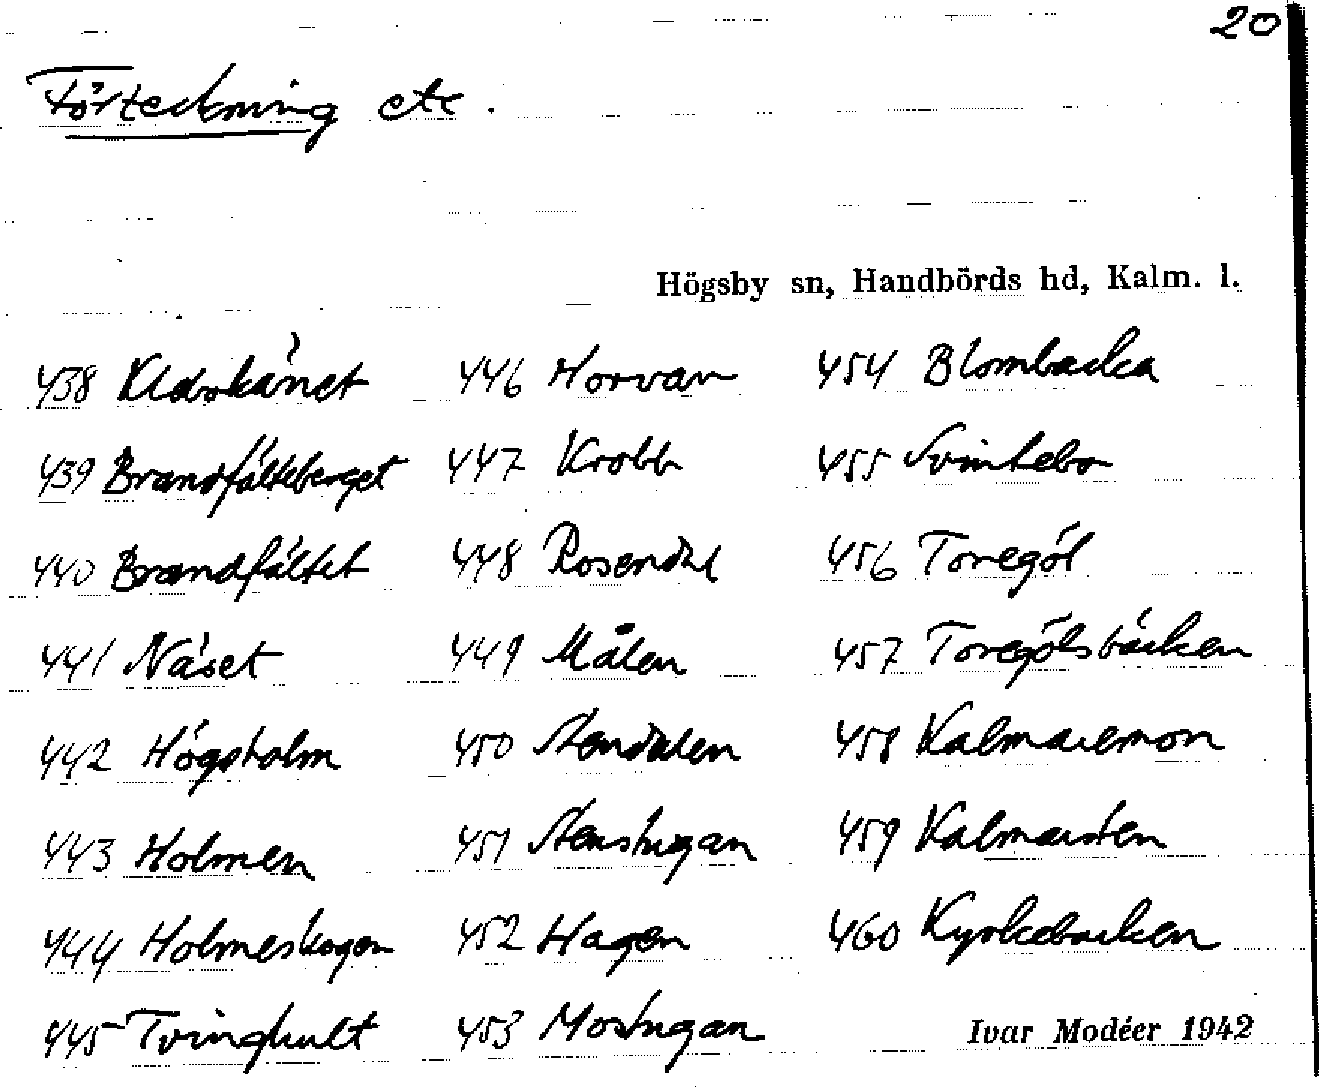 20
Förteckning etc.
Högsby sn, Handbörds hd, Kalm. l.
438
439 Brandfältsberget
440 Brandfältet
441 Näset
442 Högsholm
443 Holmen
444 Holmeskogen
445 Tvinghult
446 Horvan
447 Krobb
448 Rosendal
449 Målen
450 Stendalen
451 Stenstugan
452 Hagen
453 Mostugan
454 Blombacka
455 Svintebo
456 Toregöl
457 Toregölsbäcken
458 Kalmaremon
459
460 Kyrkebacken
Ivar Modéer 1942